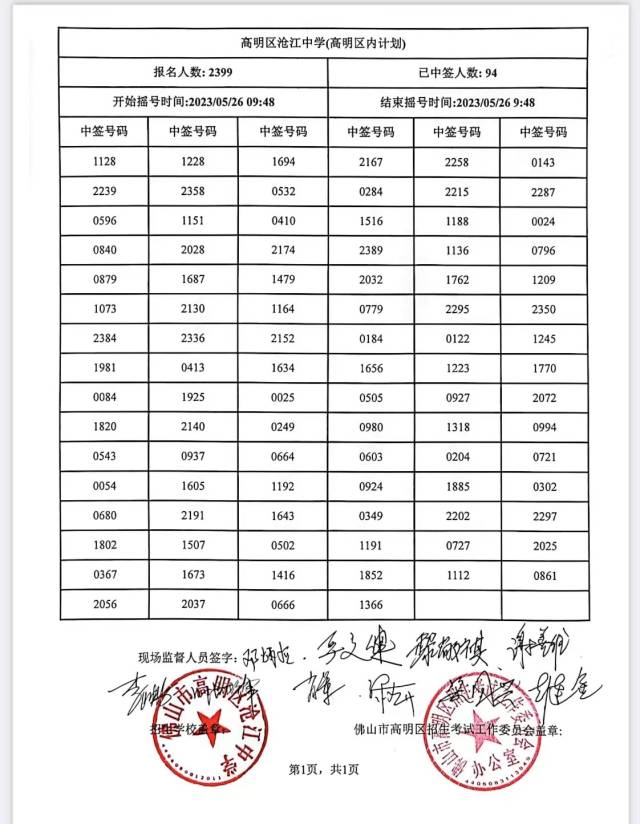 高明区沧江中学(高明区内计划)
报名人数: 2399 已中签人数: 94
开始摇号时间:2023/05/26 09:48 结束摇号时间:2023/05/26 9:48
中签号码 中签号码 中签号码 中签号码 中签号码 中签号码
1128 1228 1694 2167 2258 0143
2239 2358 0532 0284 2215 2287
0596 1151 0410 1516 1188 0024
0840 2028 2174 2389 1136 0796
0879 1687 1479 2032 1762 1209
1073 2130 1164 0779 2295 2350
2384 2336 2152 0184 0122 1245
1981 0413 1634 1656 1223 1770
0084 1925 0025 0505 0927 2072
1820 2140 0249 0980 1318 0994
0543 0937 0664 0603 0204 0721
0054 1605 1192 0924 1885 0302
0680 2191 1643 0349 2202 2297
1802 1507 0502 1191 0727 2025
0367 1673 1416 1852 1112 0861
2056 2037 0666 1366
现场监督人员签字:
招生学校盖章: 佛山市高明区招生考试工作委员会盖章:
佛山市高明区沧江中学
办公室
第1页，共1页